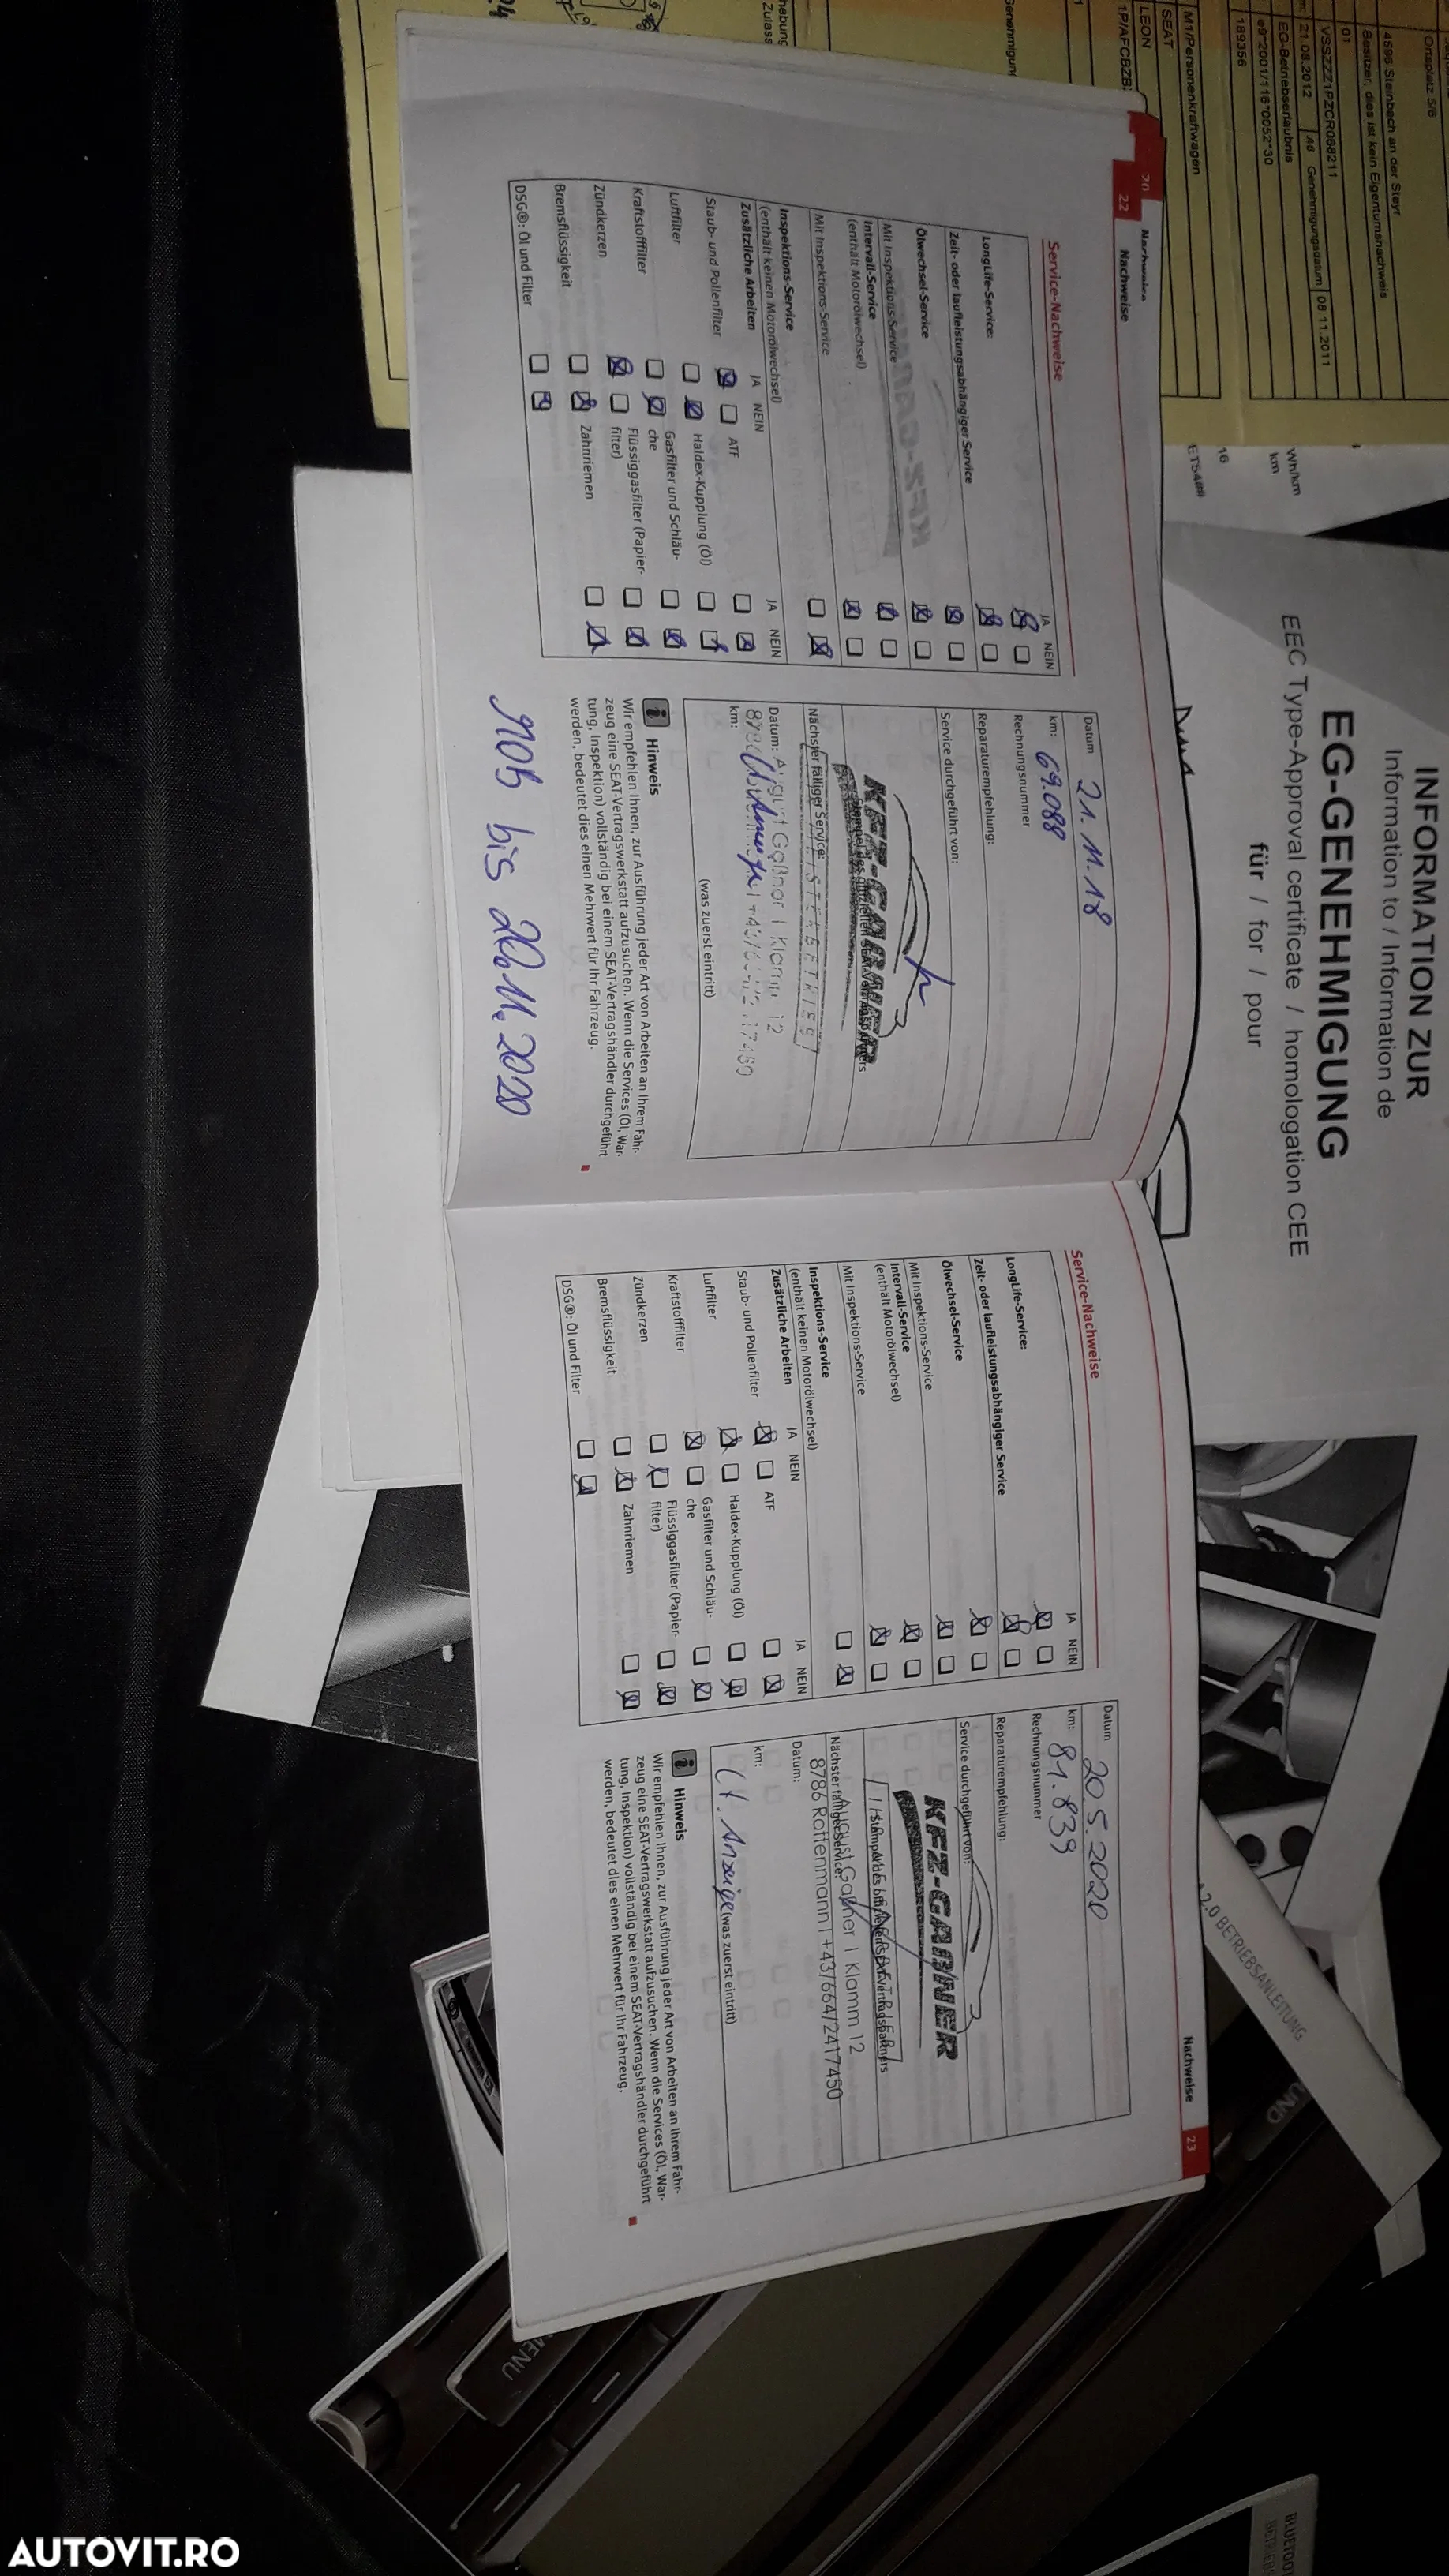 Ortsplatz 5/6
4596 Steinbach an der Steyr
Besitzer, dies ist kein Eigentumsnachweis
01
VSSZZZ1PZCR068211
21.08.2012 A6 Genehmigungsdatum 08.11.2011
EG-Betriebserlaubnis
e9*2001/116*0052*30
189356
M1/Personenkraftwagen
SEAT
LEON
Wh/km
km
16
INFORMATION ZUR
Information to / Information de
EG-GENEHMIGUNG
EEC Type-Approval certificate / homologation CEE
für / for / pour
20 Nachweise
22 Nachweise
Service-Nachweise
JA NEIN
LongLife-Service:
Zeit- oder laufleistungsabhängiger Service
Ölwechsel-Service
Mit Inspektions-Service
Intervall-Service
(enthält Motorölwechsel)
Mit Inspektions-Service
Inspektions-Service
(enthält keinen Motorölwechsel)
Zusätzliche Arbeiten
JA NEIN JA NEIN
Staub- und Pollenfilter ATF
Luftfilter Haldex-Kupplung (Öl)
Kraftstofffilter Gasfilter und Schläu-
che
Zündkerzen Flüssiggasfilter (Papier-
filter)
Bremsflüssigkeit Zahnriemen
DSG®: Öl und Filter
Datum 21.11.18
km: 69.088
Rechnungsnummer
Reparaturempfehlung:
Service durchgeführt von:
KFZ-GAßNER
Nächster fälliger Service:
Datum: August Gaßner | Klamm 12
km:
(was zuerst eintritt)
Hinweis
Wir empfehlen Ihnen, zur Ausführung jeder Art von Arbeiten an Ihrem Fahr-
zeug eine SEAT-Vertragswerkstatt aufzusuchen. Wenn die Services (Öl, War-
tung, Inspektion) vollständig bei einem SEAT-Vertragshändler durchgeführt
werden, bedeutet dies einen Mehrwert für Ihr Fahrzeug.
MOB bis 20.11.2020
Nachweise 23
Service-Nachweise
JA NEIN
LongLife-Service:
Zeit- oder laufleistungsabhängiger Service
Ölwechsel-Service
Mit Inspektions-Service
Intervall-Service
(enthält Motorölwechsel)
Mit Inspektions-Service
Inspektions-Service
(enthält keinen Motorölwechsel)
Zusätzliche Arbeiten
JA NEIN JA NEIN
Staub- und Pollenfilter ATF
Luftfilter Haldex-Kupplung (Öl)
Kraftstofffilter Gasfilter und Schläu-
che
Zündkerzen Flüssiggasfilter (Papier-
filter)
Bremsflüssigkeit Zahnriemen
DSG®: Öl und Filter
Datum 20.5.2020
km: 81.839
Rechnungsnummer
Reparaturempfehlung:
Service durchgeführt von:
KFZ-GAßNER
Nächster fälliger Service:
August Gaßner | Klamm 12
8786 Rottenmann | +43/664/2417450
Datum:
km:
lt. Anzeige (was zuerst eintritt)
Hinweis
Wir empfehlen Ihnen, zur Ausführung jeder Art von Arbeiten an Ihrem Fahr-
zeug eine SEAT-Vertragswerkstatt aufzusuchen. Wenn die Services (Öl, War-
tung, Inspektion) vollständig bei einem SEAT-Vertragshändler durchgeführt
werden, bedeutet dies einen Mehrwert für Ihr Fahrzeug.
2.0 BETRIEBSANLEITUNG
MENU
AUTOVIT.RO